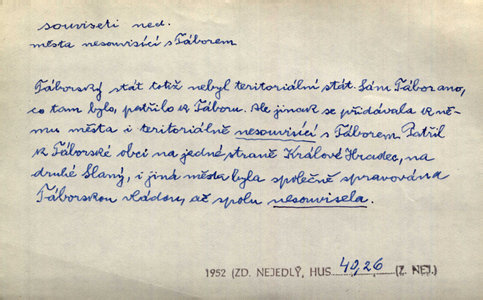 souviseti ned.
města nesouvisící s Táborem
Táborský stát totiž nebyl teritoriální stát. Sám Tábor ano,
co tam bylo, patřilo k Táboru. Ale jinak se přidávala k ně-
mu města i teritoriálně nesouvisící s Táborem. Patřil
k Táborské obci na jedné straně Králové Hradec, na
druhé Slaný, i jiná města byla společně spravována
Táborskou vládou, až spolu nesouvisela.
1952 (ZD. NEJEDLÝ, HUS 40,26 (Z. NEJ.)